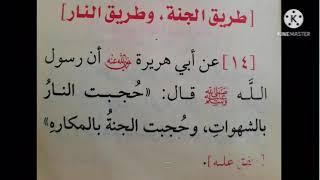 KINEMASTER
[طريق الجنة، وطريق النار]
[١٤] عن أبي هريرة رضي الله عنه أن رسول
اللَّـه ﷺ قال: «حُجبت النارُ
بالشهواتِ، وحُجبت الجنةُ بالمكارهِ»
عليه].